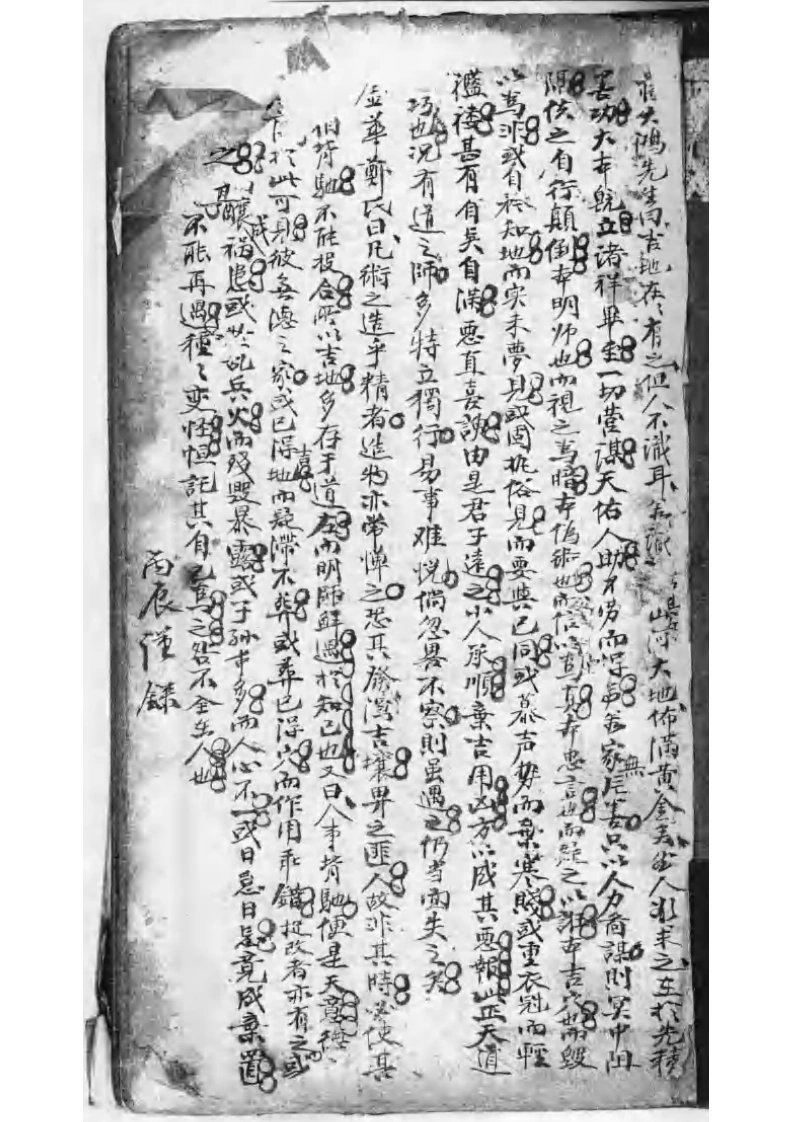 蔣大鴻先生曰吉地在在有之但人不識耳 山河大地佈滿黃金 人 求之在於先積
善功大本既立諸祥畢至一切營謀天佑人助不勞而得 家無害只以人力啇謀則冥中阻
陰使之自行顛倒本明师也而視之爲暗本偽術也而信以爲真本忠言也而疑之以誹本吉穴也而毀
以爲非或自称知地而实未夢見或囿扵俗見而要與己同或慕声势而棄寒賤或重衣冠而輕
襤褸甚有自矣自滿惡直喜諛由是君子遠之小人承順棄吉用凶方以成其惡報此正天道
巧也况有道之師多特立獨行易事难悅倘忽畧不察則虽遇之仍当面失之矣
虛華鄭氏曰凡術之造乎精者造物亦常惮之恐其發洩吉壤畀之匪人故非其時必使其
相背馳不能投合所以吉地多存于道左而明師鮮遇於知己也又曰人事背馳便是天意
於此可見彼無德之家或已得地而疑滯不葬或葬已得穴而作用乖錯 改者亦有之或
之甚釀成禍患或於 兵火而殘毀暴露或子孫本多而人心不一或日忌日 竟成棄置
不能再遇種々变怪恒託其自己爲之咎不全在人也
丙辰 錄